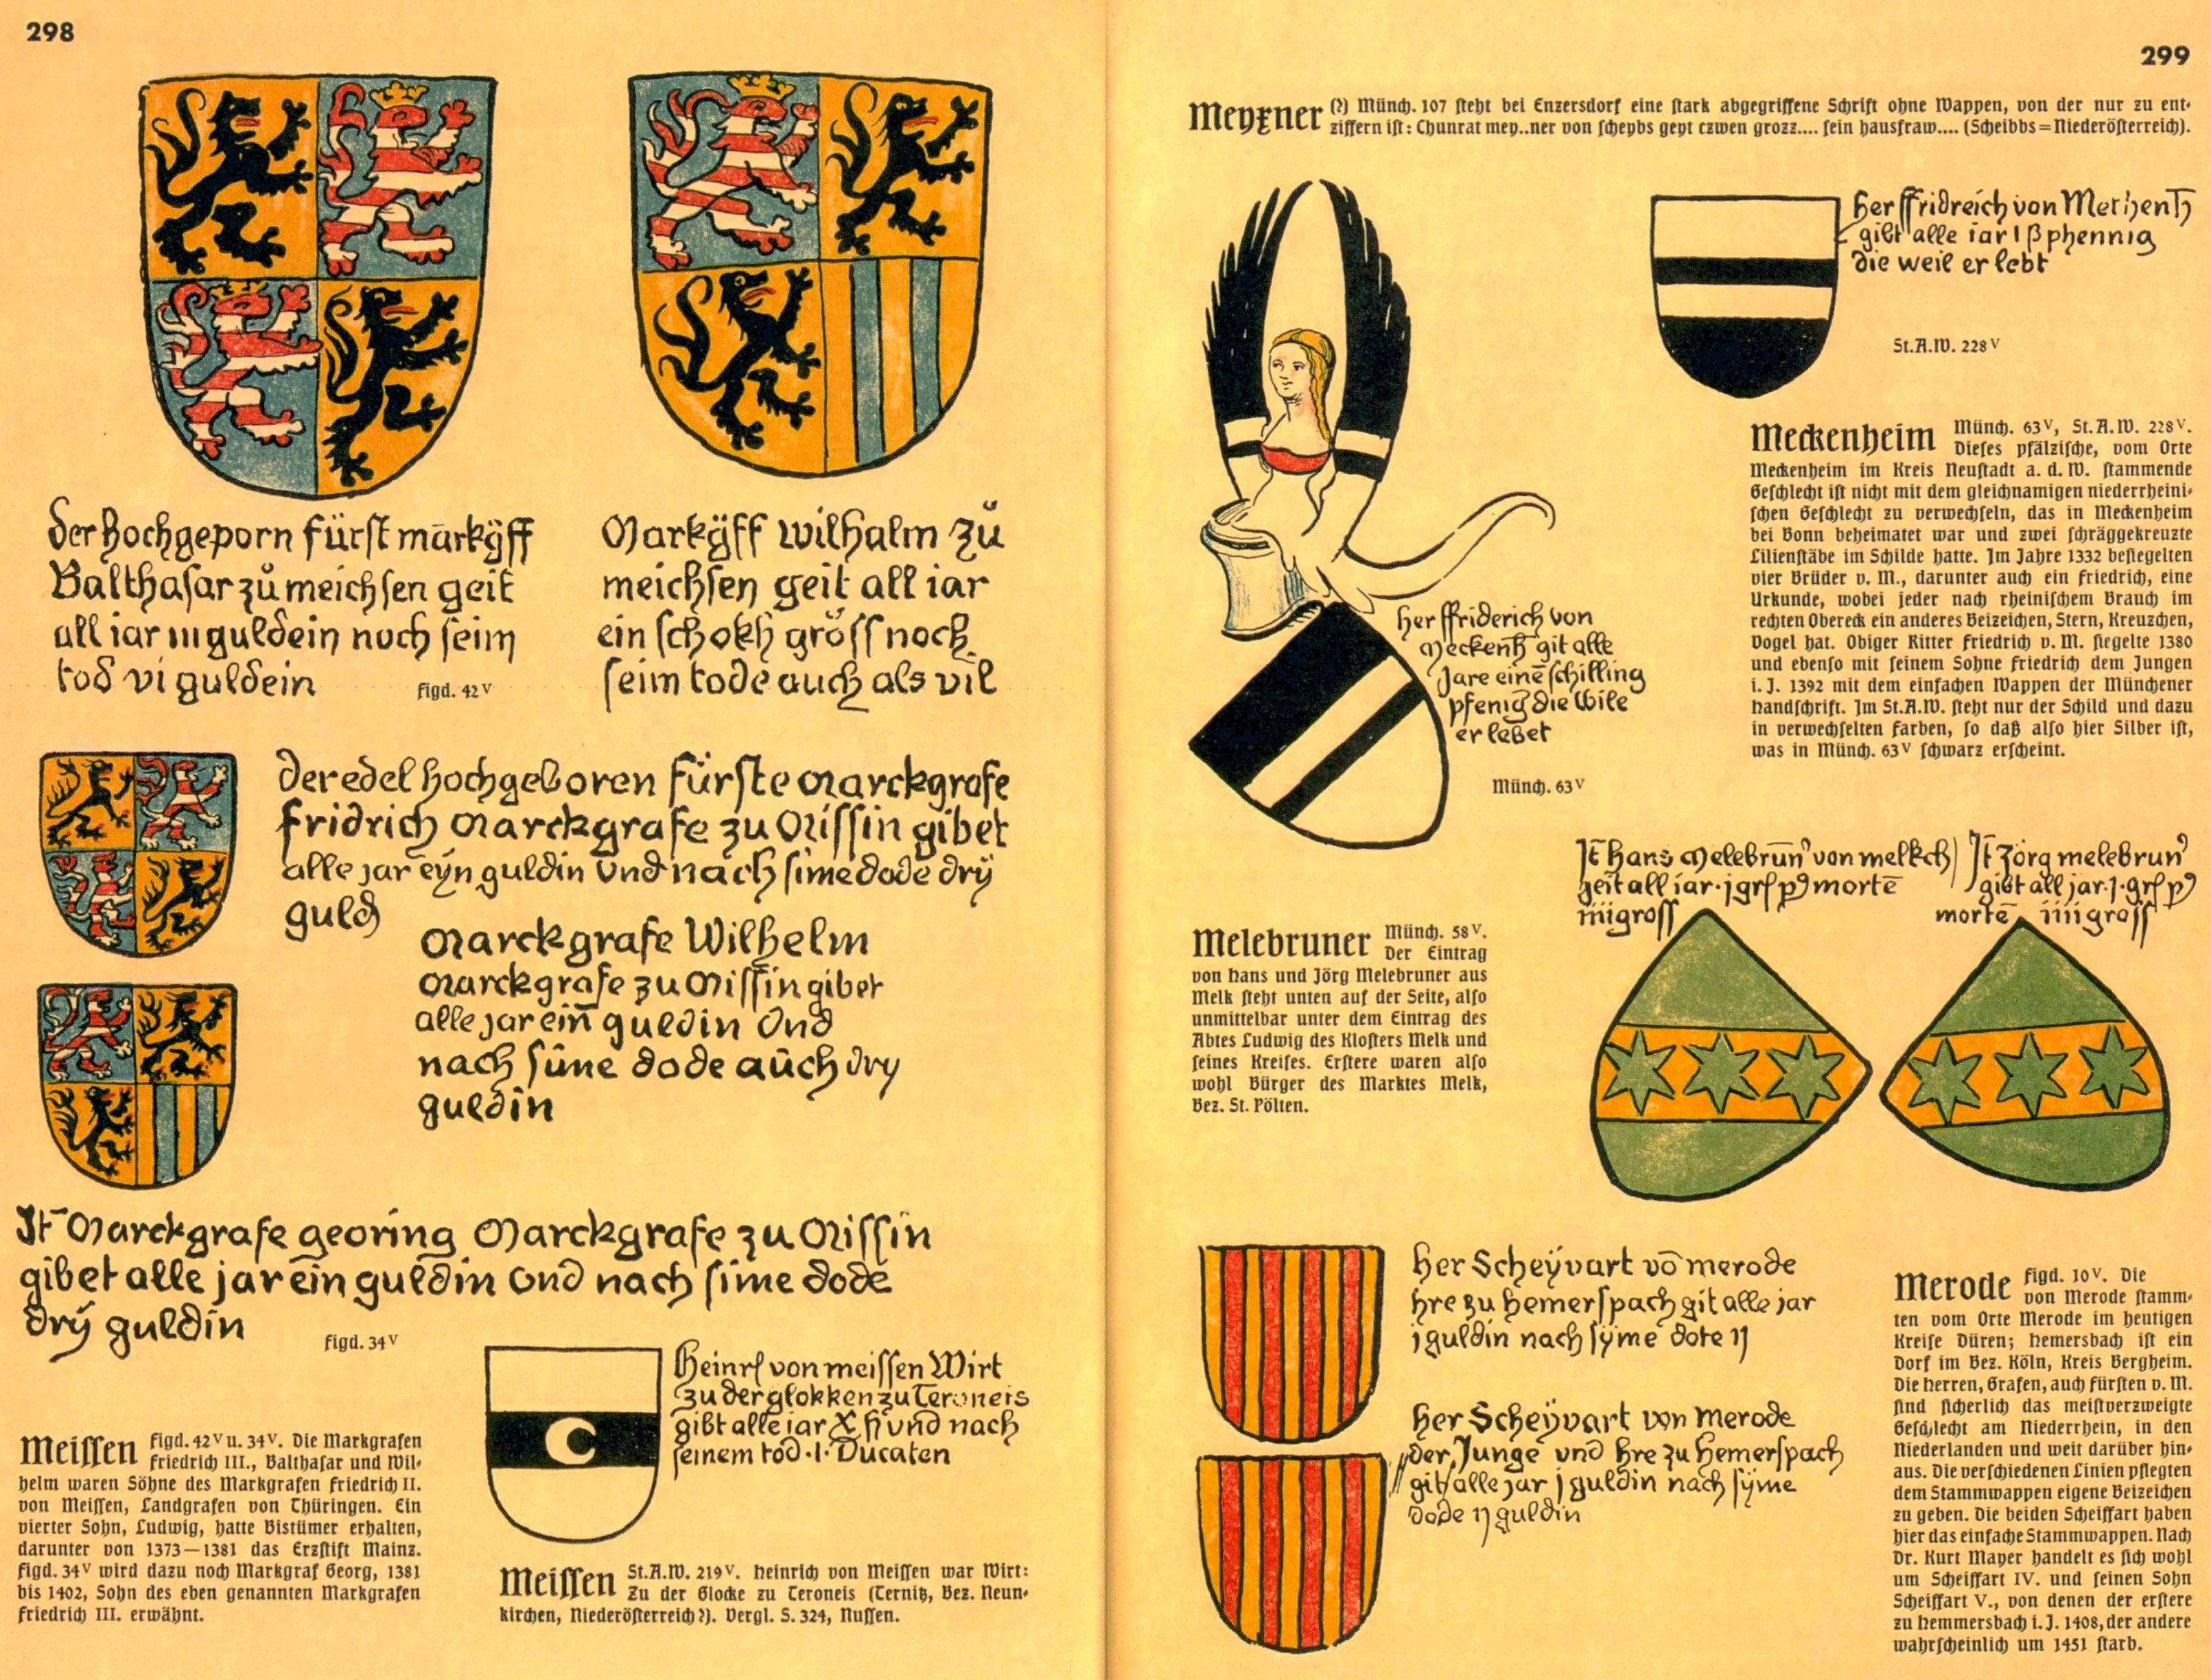 298
Der hochgeporn fürst markgff
Balthasar zů meichsen geit
all iar III guldein noch seim
tod vi guldein
Figd. 42V
Markgff wilhalm zů
meichsen geit all iar
ein schokh gröss noch
seim tode auch als vil
Der edel hochgeboren fürste Marckgrafe
fridrich Marckgrafe zu Missin gibet
alle jar eyn guldin und nach sime dode drÿ
guld
Marckgrafe Wilhelm
Marckgrafe zu Missin gibet
alle jar ein guldin und
nach sime dode auch dry
guldin
It Marckgrafe georing Marckgrafe zu Missin
gibet alle jar ein guldin und nach sime dode
drÿ guldin
Figd. 34V
Meissen Figd. 42V u. 34V. Die Markgrafen
Friedrich III., Balthasar und Wil-
helm waren Söhne des Markgrafen Friedrich II.
von Meissen, Landgrafen von Thüringen. Ein
vierter Sohn, Ludwig, hatte Bistümer erhalten,
darunter von 1373—1381 das Erzstift Mainz.
Figd. 34V wird dazu noch Markgraf Georg, 1381
bis 1402, Sohn des eben genannten Markgrafen
Friedrich III. erwähnt.
von meissen Wirt
zu der glokken zu Teroneis
gibt alle iar und nach
seinem tod ·I· Ducaten
Meissen St.A.W. 219V. Heinrich von Meissen war Wirt:
Zu der Glocke zu Teroneis (Ternitz, Bez. Neun-
kirchen, Niederösterreich?). Vergl. S. 324, Nussen.
299
Meyxner (?) Münch. 107 steht bei Enzersdorf eine stark abgegriffene Schrift ohne Wappen, von der nur zu ent-
ziffern ist: Chunrat mey..ner von scheybs geyt czwen grozz.... sein hausfraw.... (Scheibbs=Niederösterreich).
her ffridreich von
gibt alle iar I ß phennig
die weil er lebt
St.A.W. 228V
Meckenheim Münch. 63V, St.A.W. 228V.
Dieses pfälzische, vom Orte
Meckenheim im Kreis Neustadt a. d. W. stammende
Geschlecht ist nicht mit dem gleichnamigen niederrheini-
schen Geschlecht zu verwechseln, das in Meckenheim
bei Bonn beheimatet war und zwei schräggekreuzte
Lilienstäbe im Schilde hatte. Im Jahre 1332 besiegelten
vier Brüder v. M., darunter auch ein Friedrich, eine
Urkunde, wobei jeder nach rheinischem Brauch im
rechten Obereck ein anderes Beizeichen, Stern, Kreuzchen,
Vogel hat. Obiger Ritter Friedrich v. M. siegelte 1380
und ebenso mit seinem Sohne Friedrich dem Jungen
i. J. 1392 mit dem einfachen Wappen der Münchener
Handschrift. Im St.A.W. steht nur der Schild und dazu
in verwechselten Farben, so daß also hier Silber ist,
was in Münch. 63V schwarz erscheint.
her ffriderich von
Meckenh git alle
Jare eine schilling
pfenig die wile
er lebet
Münch. 63V
It hans Melebrun von melkch
geit all iar · j grs morte
iiii gross
It Jörg melebrun
gibt all jar · j · grs
morte iiii gross
Melebruner Münch. 58V.
Der Eintrag
von Hans und Jörg Melebruner aus
Melk steht unten auf der Seite, also
unmittelbar unter dem Eintrag des
Abtes Ludwig des Klosters Melk und
seines Kreises. Erstere waren also
wohl Bürger des Marktes Melk,
Bez. St. Pölten.
her Scheyvart vō merode
hre zu hemerspach git alle jar
j guldin nach syme dote ij
her Scheyvart von merode
der Junge und hre zu hemerspach
git alle jar j guldin nach syme
dode ij guldin
Merode Figd. 10V. Die
von Merode stamm-
ten vom Orte Merode im heutigen
Kreise Düren; Hemersbach ist ein
Dorf im Bez. Köln, Kreis Bergheim.
Die Herren, Grafen, auch Fürsten v. M.
sind sicherlich das meistverzweigte
Geschlecht am Niederrhein, in den
Niederlanden und weit darüber hin-
aus. Die verschiedenen Linien pflegten
dem Stammwappen eigene Beizeichen
zu geben. Die beiden Scheiffart haben
hier das einfache Stammwappen. Nach
Dr. Kurt Mayer handelt es sich wohl
um Scheiffart IV. und seinen Sohn
Scheiffart V., von denen der erstere
zu Hemmersbach i. J. 1408, der andere
wahrscheinlich um 1451 starb.